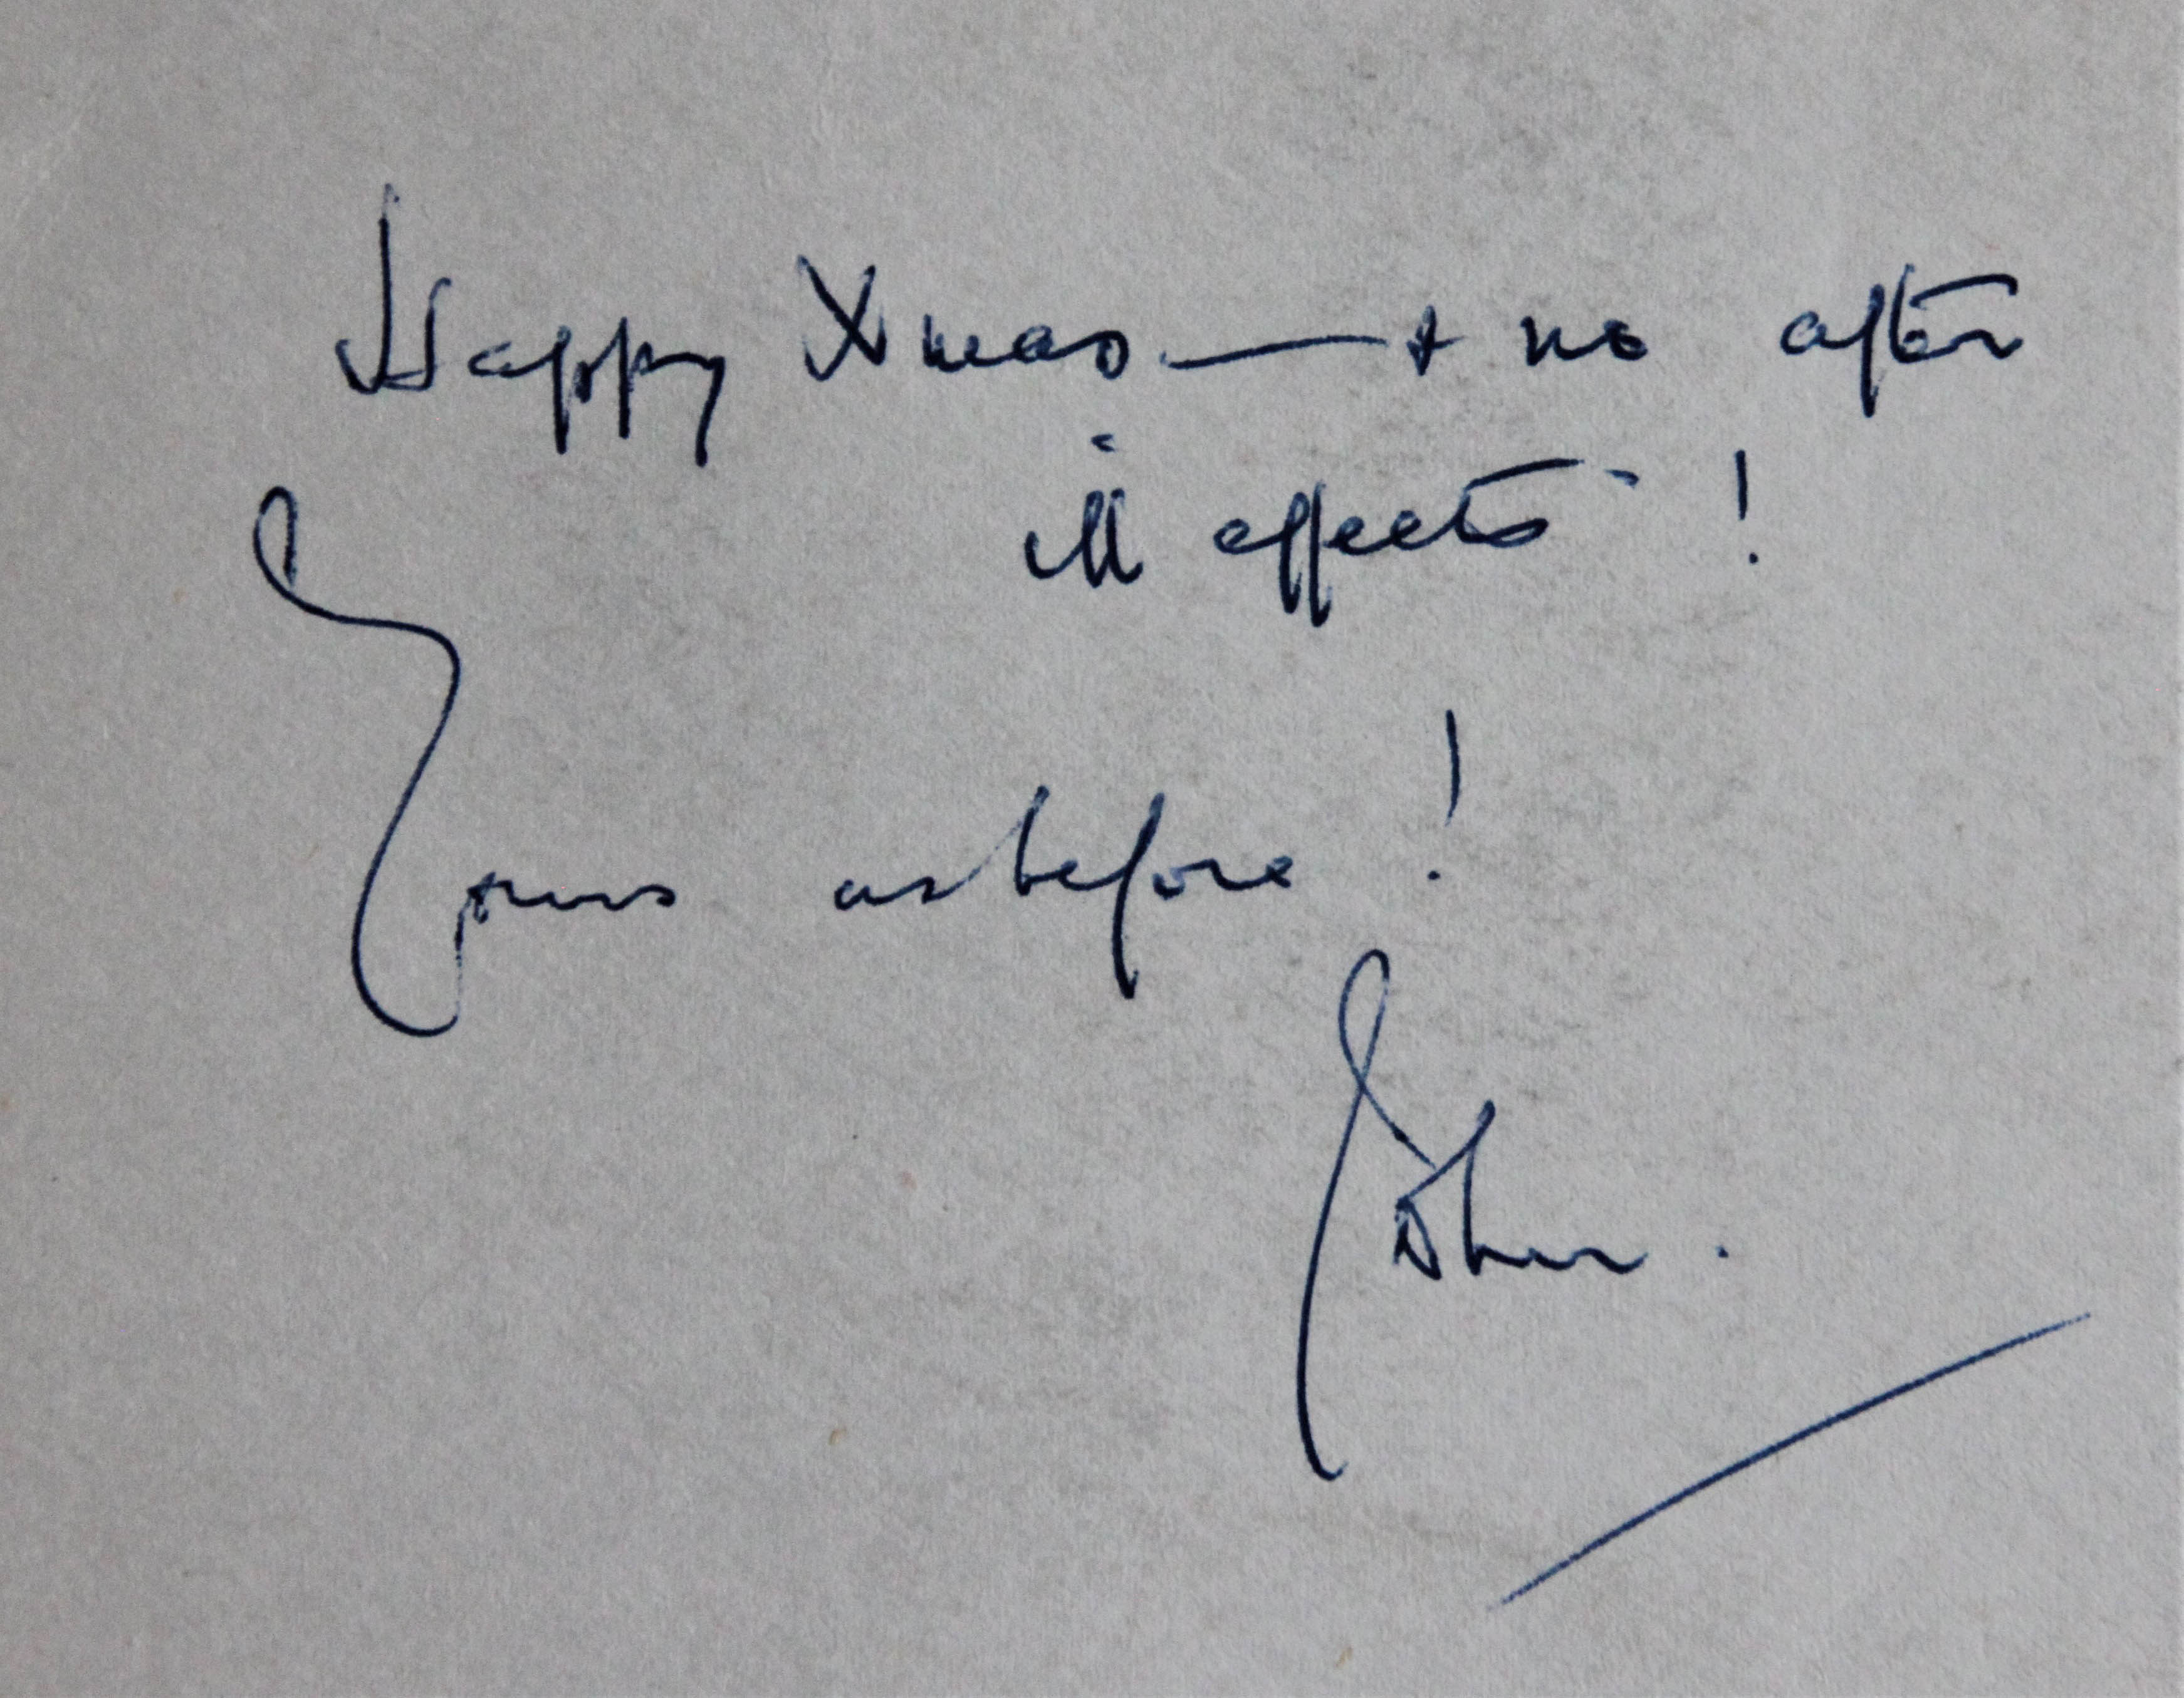 Happy Xmas — + no after
ill effects !
Yours as before !
John.